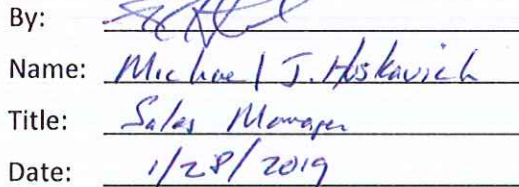 By:
Name: Michael J. Huskavich
Title: Sales Manager
Date: 1/28/2019